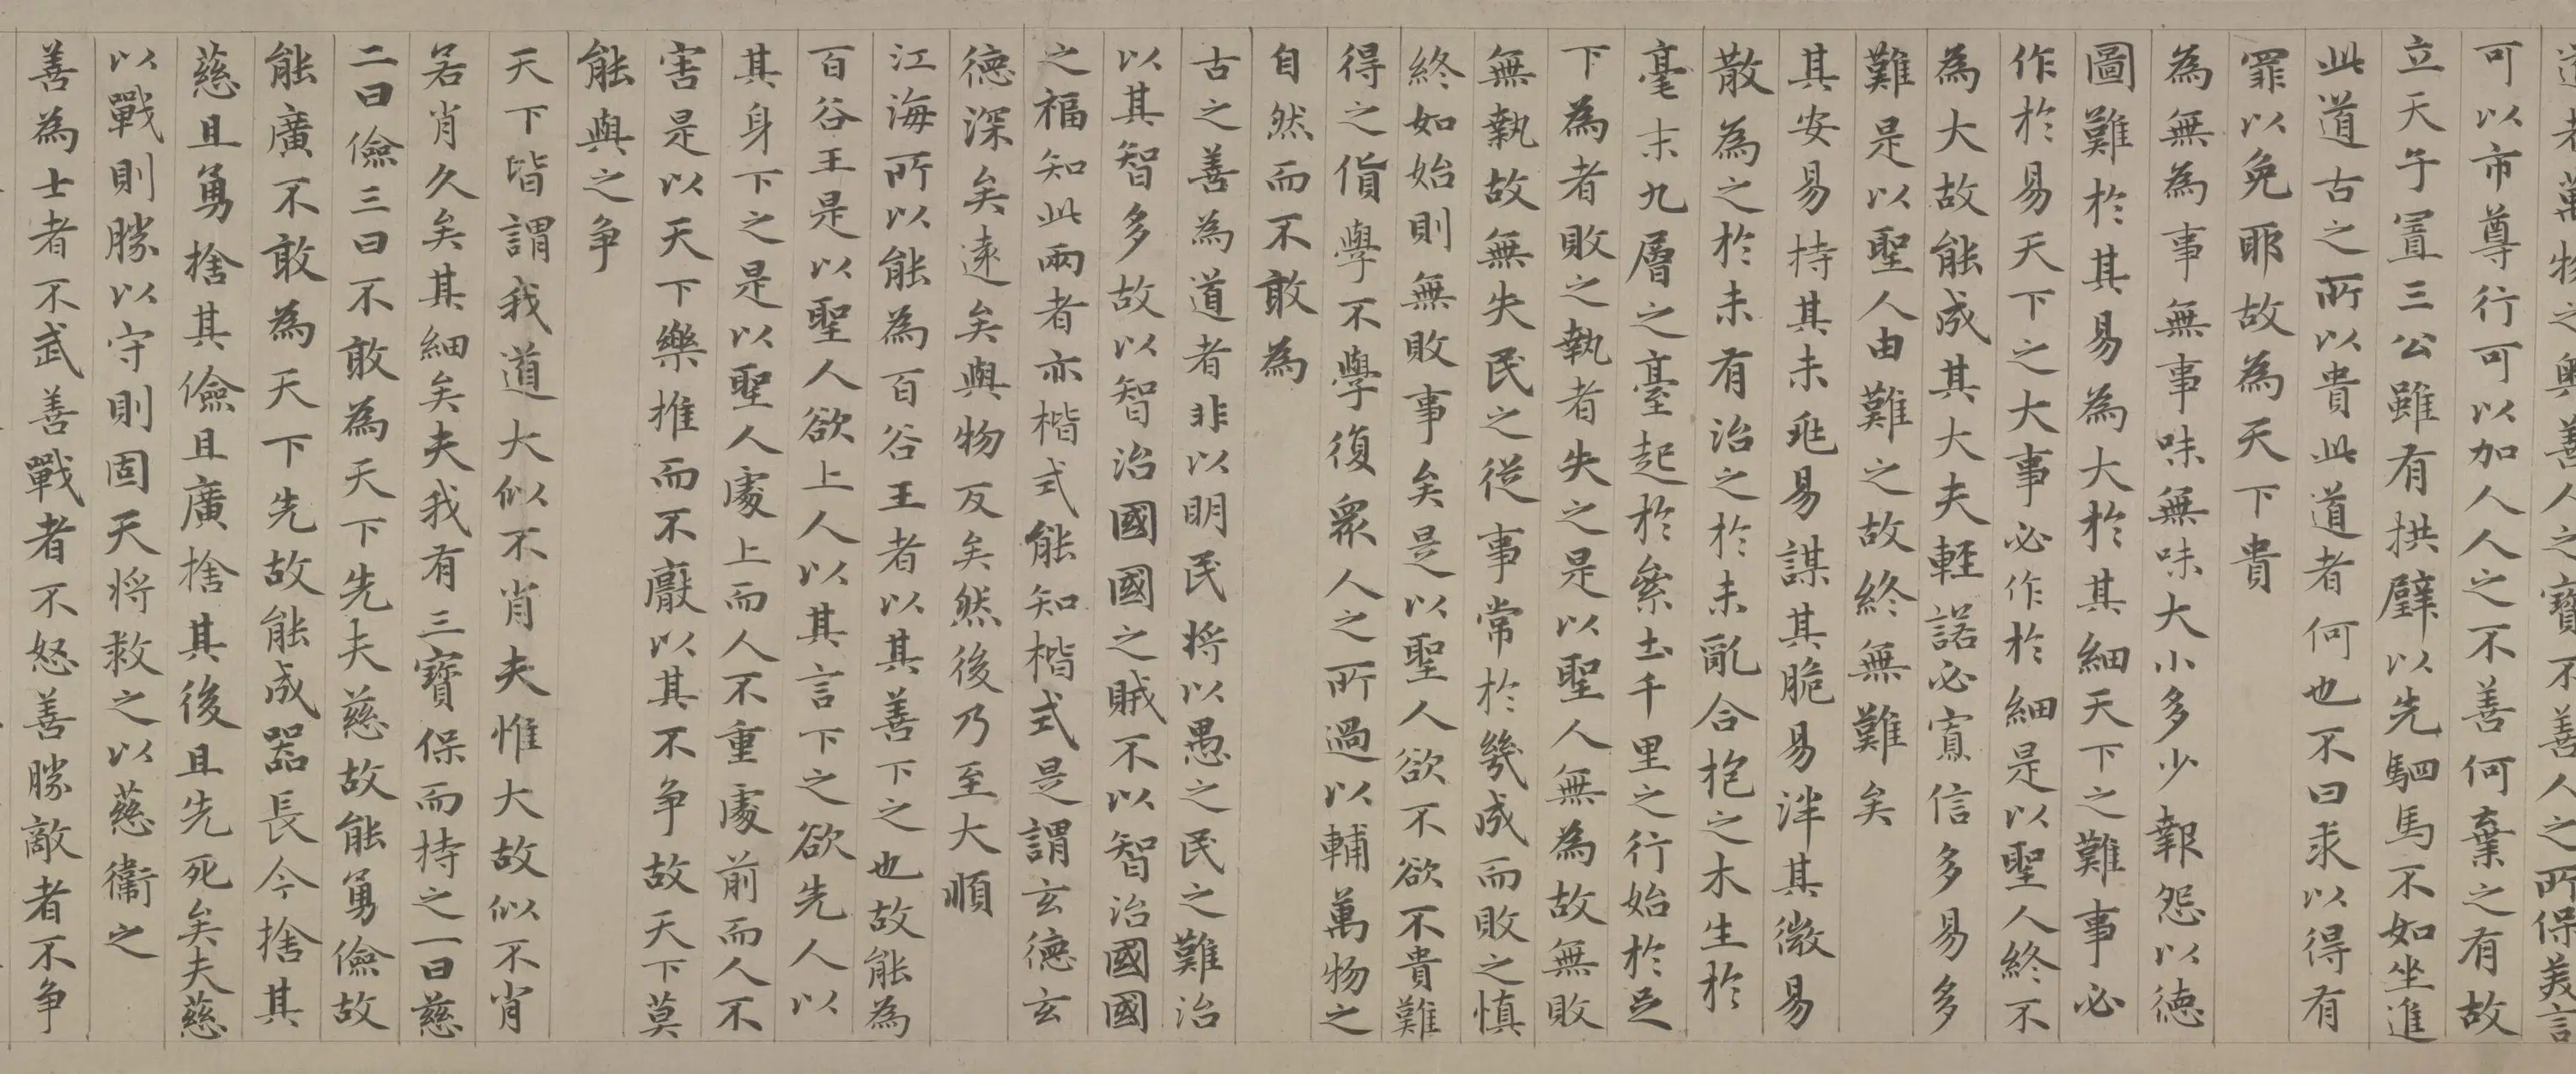 道者萬物之奧善人之寶不善人之所保美言
可以市尊行可以加人人之不善何棄之有故
立天子置三公雖有拱璧以先駟馬不如坐進
此道古之所以貴此道者何也不曰求以得有
罪以免耶故為天下貴
為無為事無事味無味大小多少報怨以德
圖難於其易為大於其細天下之難事必
作於易天下之大事必作於細是以聖人終不
為大故能成其大夫輕諾必寡信多易多
難是以聖人由難之故終無難矣
其安易持其未兆易謀其脆易泮其微易
散為之於未有治之於未亂合抱之木生於
毫末九層之臺起於累土千里之行始於足
下為者敗之執者失之是以聖人無為故無敗
無執故無失民之從事常於幾成而敗之慎
終如始則無敗事矣是以聖人欲不欲不貴難
得之貨學不學復眾人之所過以輔萬物之
自然而不敢為
古之善為道者非以明民將以愚之民之難治
以其智多故以智治國國之賊不以智治國國
之福知此兩者亦楷式能知楷式是謂玄德玄
德深矣遠矣與物反矣然後乃至大順
江海所以能為百谷王者以其善下之也故能為
百谷王是以聖人欲上人以其言下之欲先人以
其身下之是以聖人處上而人不重處前而人不
害是以天下樂推而不厭以其不爭故天下莫
能與之爭
天下皆謂我道大似不肖夫惟大故似不肖
若肖久矣其細矣夫我有三寶保而持之一曰慈
二曰儉三曰不敢為天下先夫慈故能勇儉故
能廣不敢為天下先故能成器長今捨其
慈且勇捨其儉且廣捨其後且先死矣夫慈
以戰則勝以守則固天將救之以慈衛之
善為士者不武善戰者不怒善勝敵者不爭